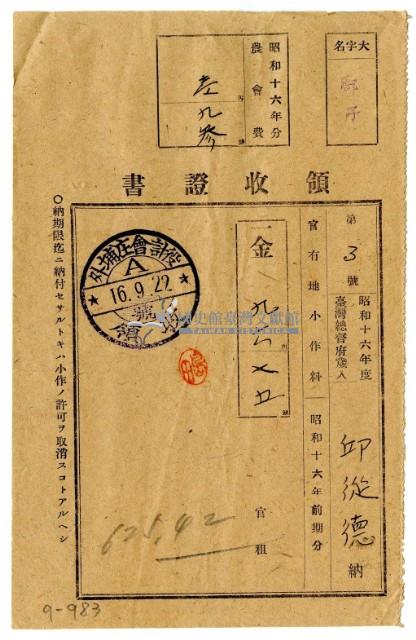 大字名
昭和十六年分
農會費
壱九參
領收證書
第3號
昭和十六年度
臺灣總督府歲入
官有地小作料
昭和十六年前期分
邱從德納
一金
九六七五
官租
625,42
外埔庄會計役
A
16.9.22
領
臺灣史館臺灣文獻館
TAIWAN HISTORICA
○納期限迄ニ納付セサルトキハ小作ノ許可ヲ取消スコトアルヘシ
9-983